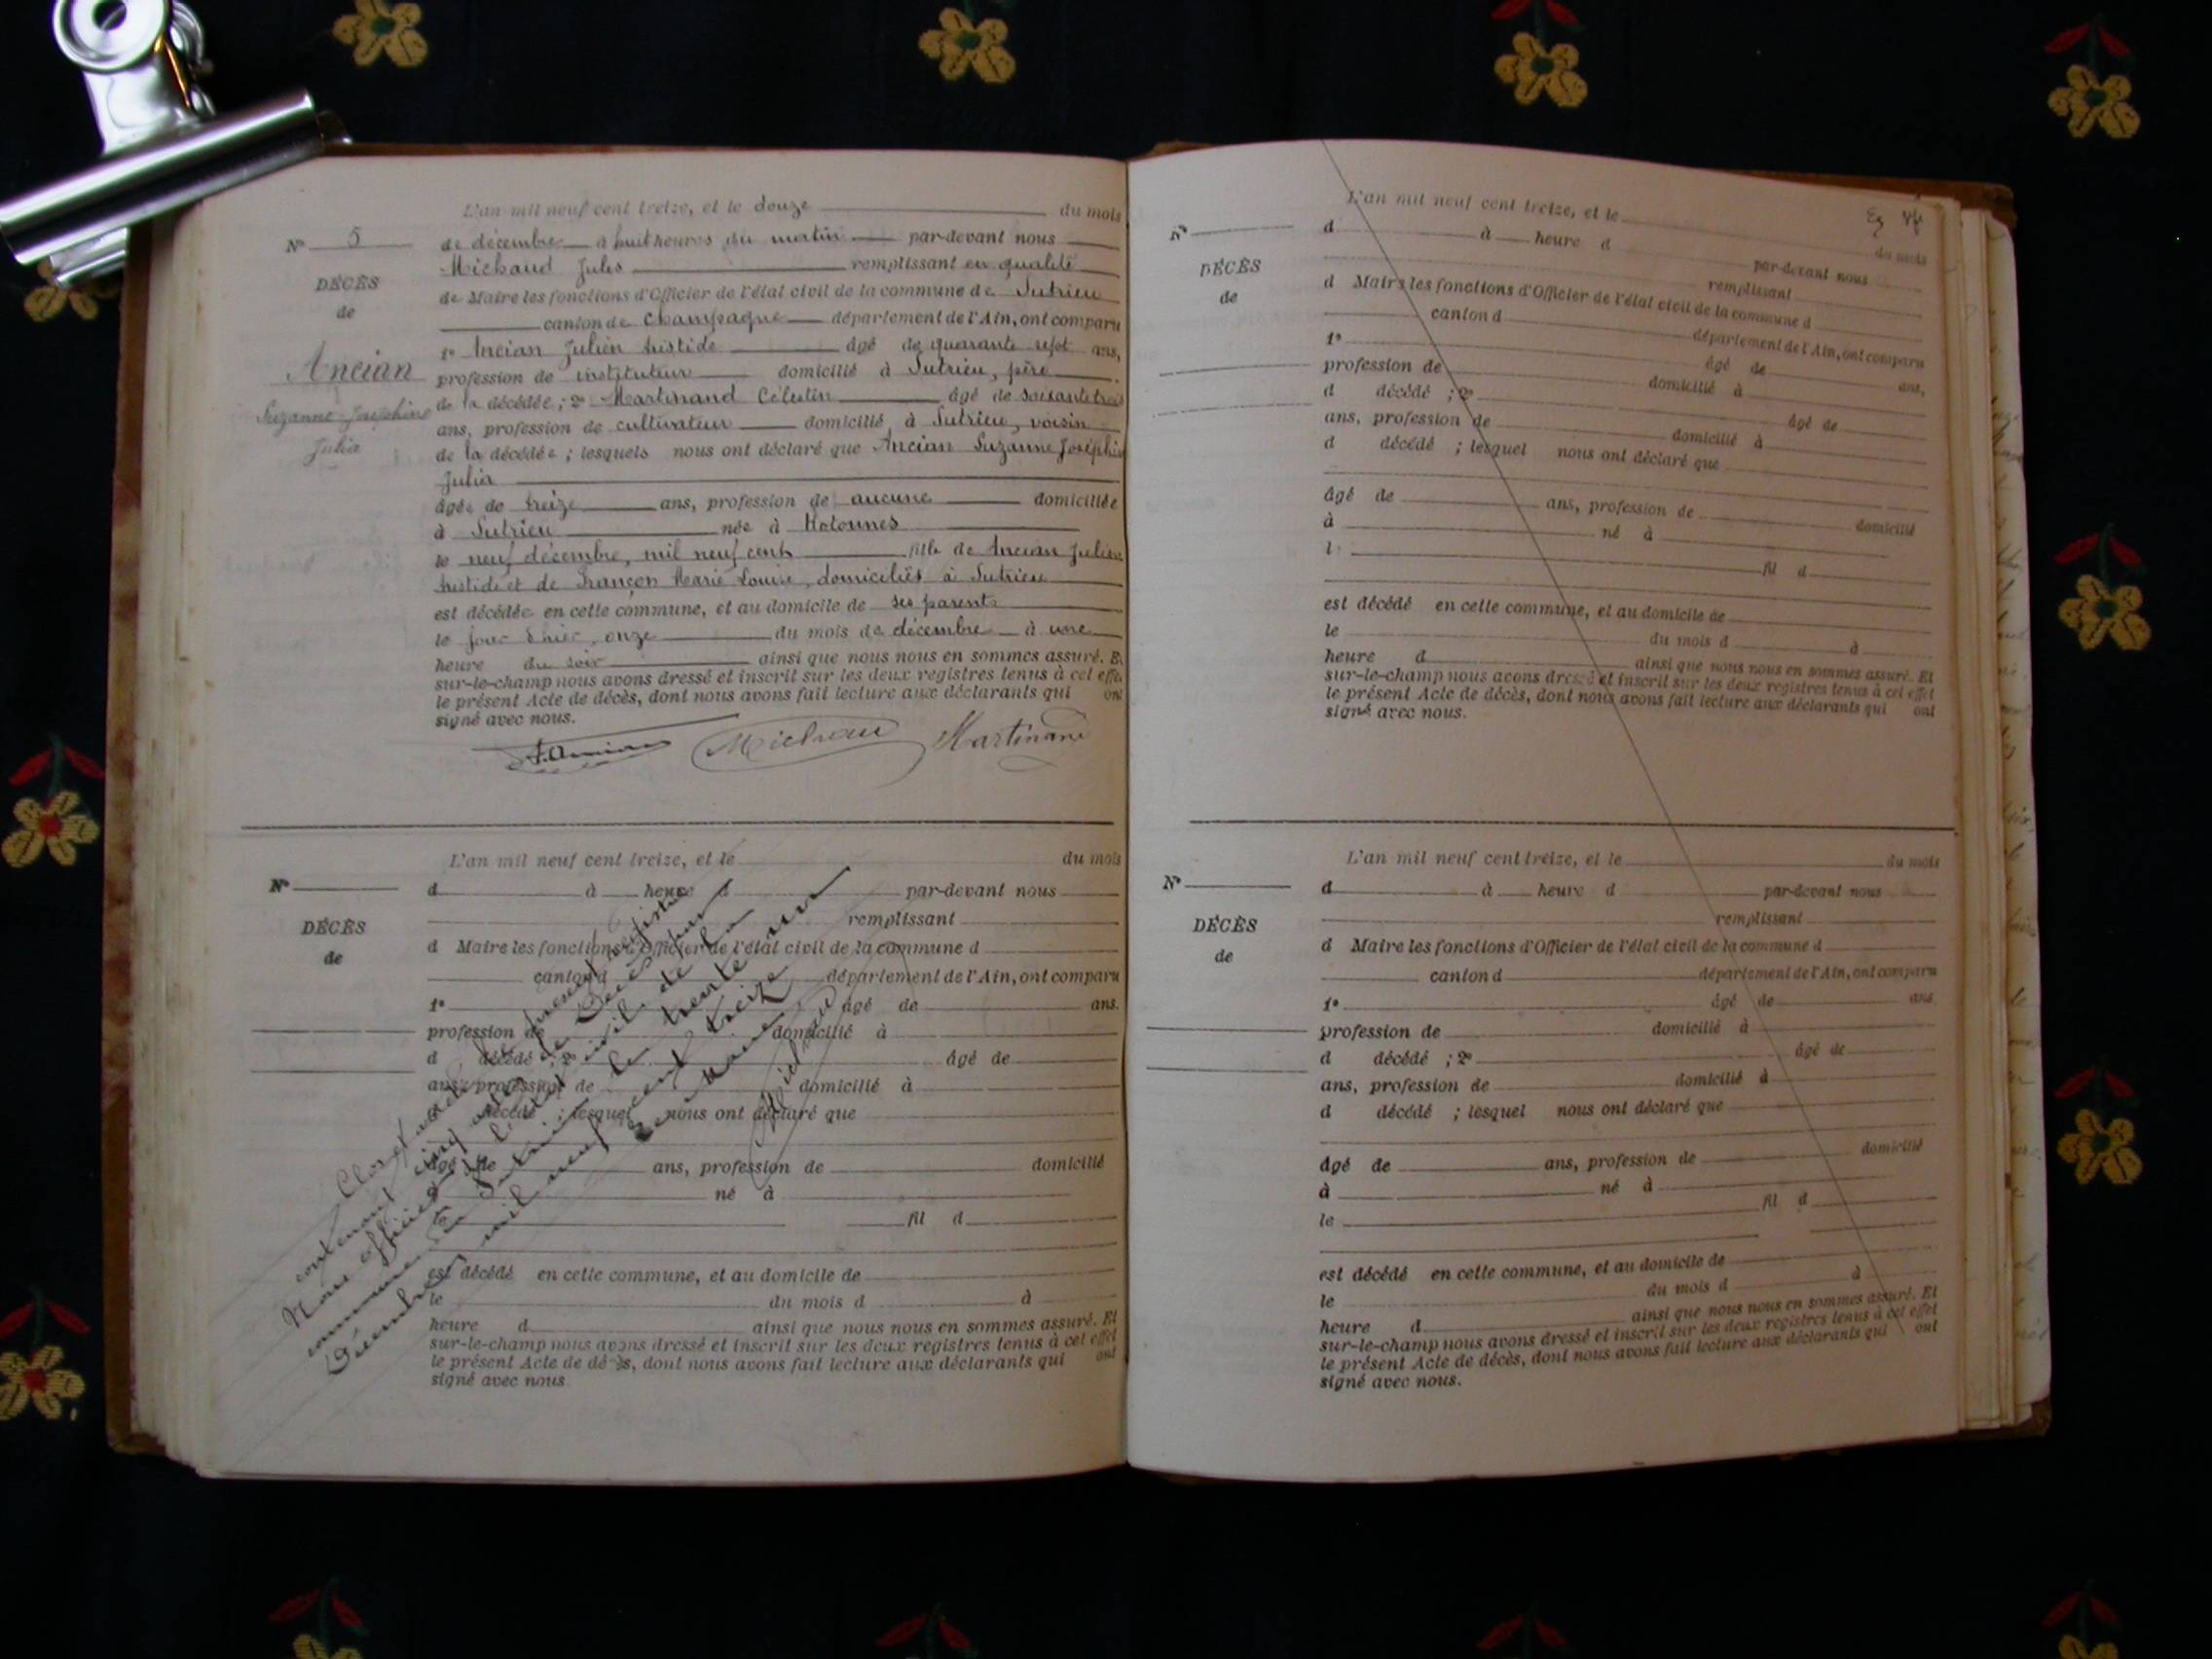 L'an mil neuf cent treize, et le douze du mois
N° 5
de décembre à huit heures du matin par-devant nous
Michaud Jules remplissant en qualité
DÉCÈS
de Maire les fonctions d'Officier de l'état civil de la commune de Sutrieu
de
canton de Champagne département de l'Ain, ont comparu
1° Ancian Julien Aristide âgé de quarante sept ans,
Ancian
profession de instituteur domicilié à Sutrieu, père
Suzanne Joséphine
de la décédée ; 2° Martinand Célestin âgé de soixante trois
ans, profession de cultivateur domicilié à Sutrieu, voisin
Julia
de la décédée ; lesquels nous ont déclaré que Ancian Suzanne Joséphine
Julia
âgée de treize ans, profession de aucune domiciliée
à Sutrieu née à Hotonnes
le neuf décembre, mil neuf cent fille de Ancian Julien
Aristide et de Françon Marie Louise, domiciliés à Sutrieu
est décédée en cette commune, et au domicile de ses parents
le jour d'hier, onze du mois de décembre à une
heure du soir ainsi que nous nous en sommes assuré. Et
sur-le-champ nous avons dressé et inscrit sur les deux registres tenus à cet effet
le présent Acte de décès, dont nous avons fait lecture aux déclarants qui ont
signé avec nous.
Michaud Martinand
L'an mil neuf cent treize, et le du mois
N°
d à heure d par-devant nous
remplissant
DÉCÈS
d Maire les fonctions d'Officier de l'état civil de la commune d
de
canton d département de l'Ain, ont comparu
1° âgé de ans.
profession de domicilié à
d décédé ; 2° âgé de
ans, profession de domicilié à
d décédé ; lesquel nous ont déclaré que
âgé de ans, profession de domicilié
à né à
le fil d
est décédé en cette commune, et au domicile de
le du mois d à
heure d ainsi que nous nous en sommes assuré. Et
sur-le-champ nous avons dressé et inscrit sur les deux registres tenus à cet effet
le présent Acte de décès, dont nous avons fait lecture aux déclarants qui ont
signé avec nous
Clos et arrêté le présent registre
contenant cinq actes de Décès par
Nous officier de l'état civil de la
commune de Sutrieu le trente un
Décembre mil neuf cent treize
Le Maire
Michaud
L'an mil neuf cent treize, et le du mois
N°
d à heure d par-devant nous
remplissant
DÉCÈS
d Maire les fonctions d'Officier de l'état civil de la commune d
de
canton d département de l'Ain, ont comparu
1° âgé de ans,
profession de domicilié à
d décédé ; 2° âgé de
ans, profession de domicilié à
d décédé ; lesquel nous ont déclaré que
âgé de ans, profession de domicilié
à né à
l fil d
est décédé en cette commune, et au domicile de
le du mois d à
heure d ainsi que nous nous en sommes assuré. Et
sur-le-champ nous avons dressé et inscrit sur les deux registres tenus à cet effet
le présent Acte de décès, dont nous avons fait lecture aux déclarants qui ont
signé avec nous.
L'an mil neuf cent treize, et le du mois
N°
d à heure d par-devant nous
remplissant
DÉCÈS
d Maire les fonctions d'Officier de l'état civil de la commune d
de
canton d département de l'Ain, ont comparu
1° âgé de ans
profession de domicilié à
d décédé ; 2° âgé de
ans, profession de domicilié à
d décédé ; lesquel nous ont déclaré que
âgé de ans, profession de domicilié
à né à
le fil d
est décédé en cette commune, et au domicile de
le du mois d à
heure d ainsi que nous nous en sommes assuré. Et
sur-le-champ nous avons dressé et inscrit sur les deux registres tenus à cet effet
le présent Acte de décès, dont nous avons fait lecture aux déclarants qui ont
signé avec nous.